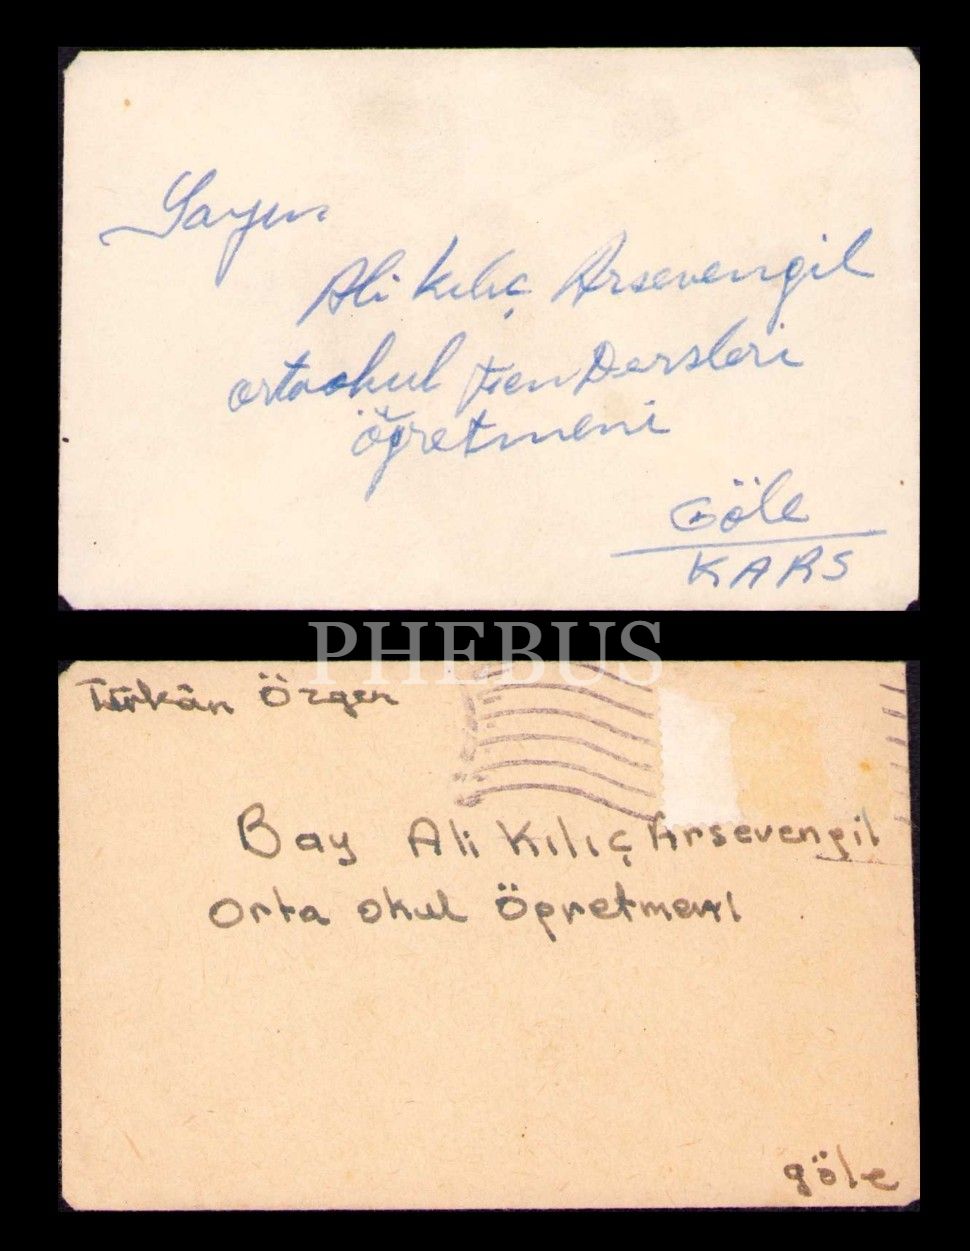 Sayın
Ali Kılıç Arsevengil
ortaokul Fen Dersleri
öğretmeni
Göle
KARS
PHEBUS
Türkân Özgen
Bay Ali Kılıç Arsevengil
Orta okul Öğretmeni
göle